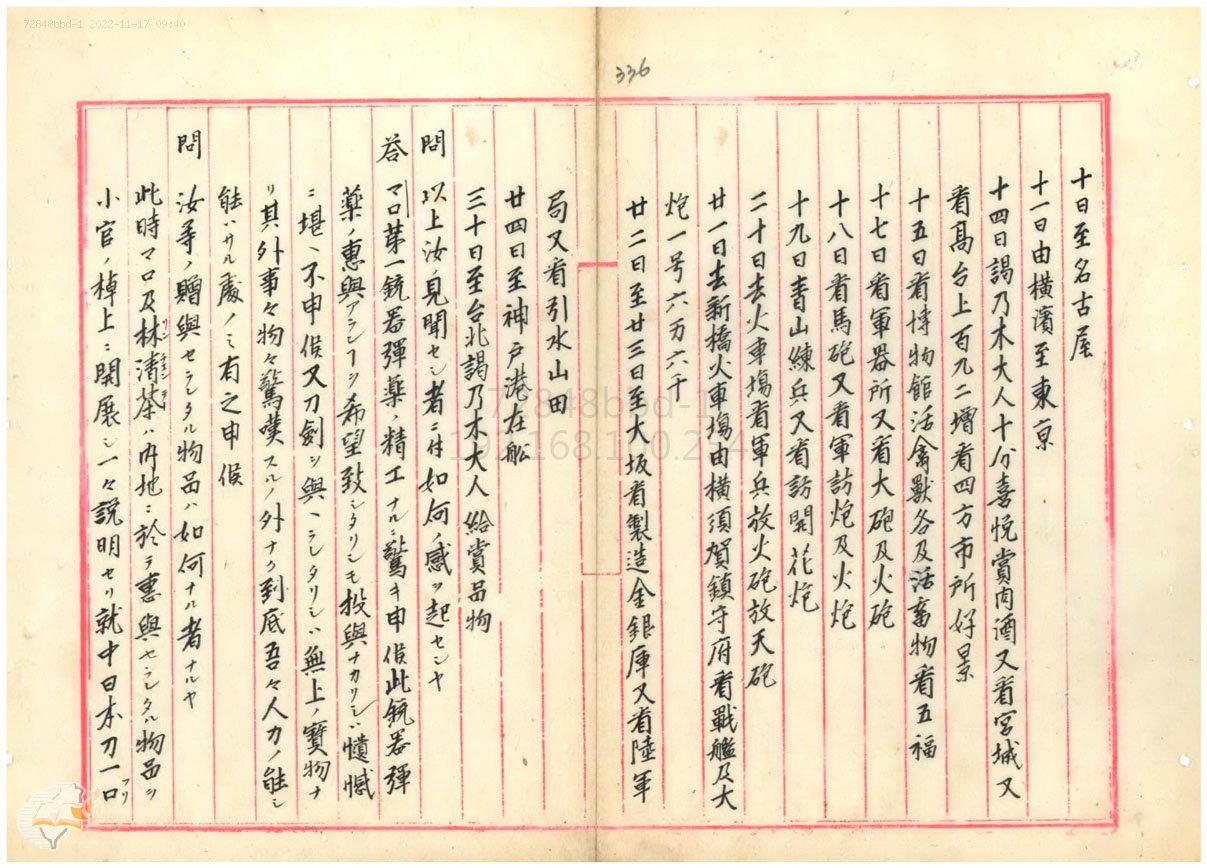 72848bbd-1 2022-11-17 09:40
336
十日至名古屋
十一日由橫濱至東京
十四日謁乃木大人十分喜悅賞肉酒又看宮城又
看高台上百九二增看四方市所好景
十五日看博物館活禽獸各及活畜物看五福
十七日看軍器所又看大砲及火砲
十八日看馬砲又看軍訪炮及火炮
十九日青山練兵又看訪開花炮
二十日去火車塲看軍兵放火砲放天砲
廿一日去新橋火車塲由橫須賀鎮守府看戰艦及大
炮一号六万六千
廿二日至廿三日至大坂看製造金銀庫又看陸軍
局又看引水山田
廿四日至神戶港在舩
三十日至台北謁乃木大人給賞品物
問 以上汝ノ見聞セシ者ニ付如何ノ感ヲ起セシヤ
答 マロ第一銃器彈藥ノ精工ナルニ驚キ申候此銃器彈
藥ノ惠與アランヿヲ希望致シタリシモ投與ナカリシハ憾
ニ堪ヘ不申候又刀劍ヲ與ヘラレタリシハ無上ノ寶物ナ
リ其外事々物々驚嘆スルノ外ナク到底吾々人力ノ能シ
能ハサル處ノミ有之申候
問 汝等ノ贈與セラレタル物品ハ如何ナル者ナルヤ
此時マロ及林清茶ハ內地ニ於テ惠與セラレタル物品ヲ
リンチエンテ
小官ノ棹上ニ開展シ一々說明セリ就中日本刀一口
フリ
72848bbd-1